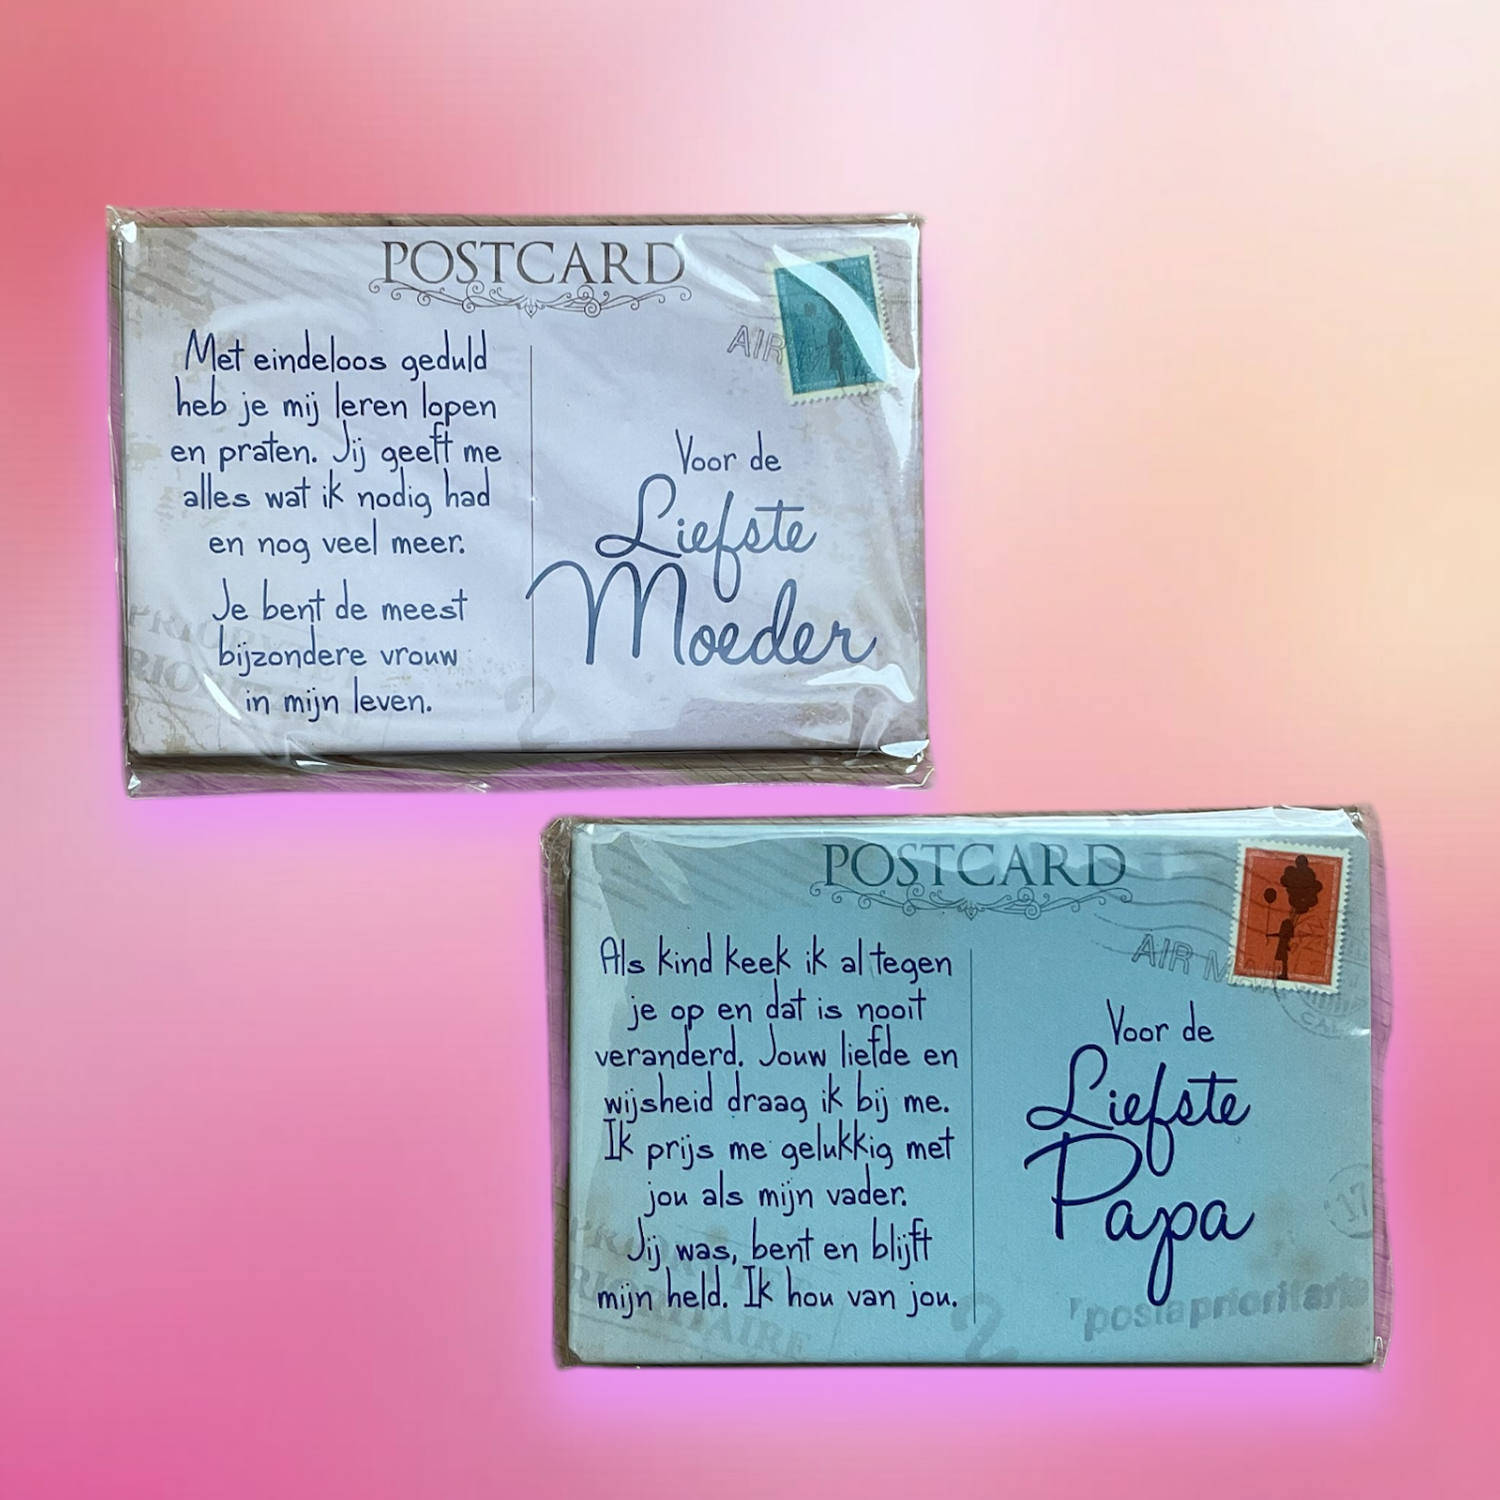 POSTCARD
AIR
Met eindeloos geduld
heb je mij leren lopen
en praten. Jij geeft me
alles wat ik nodig had
en nog veel meer.
Je bent de meest
bijzondere vrouw
in mijn leven.
Voor de
Liefste
Moeder
POSTCARD
AIR
Als kind keek ik al tegen
je op en dat is nooit
veranderd. Jouw liefde en
wijsheid draag ik bij me.
Ik prijs me gelukkig met
jou als mijn vader.
Jij was, bent en blijft
mijn held. Ik hou van jou.
Voor de
Liefste
Papa
17
postaprioritaria